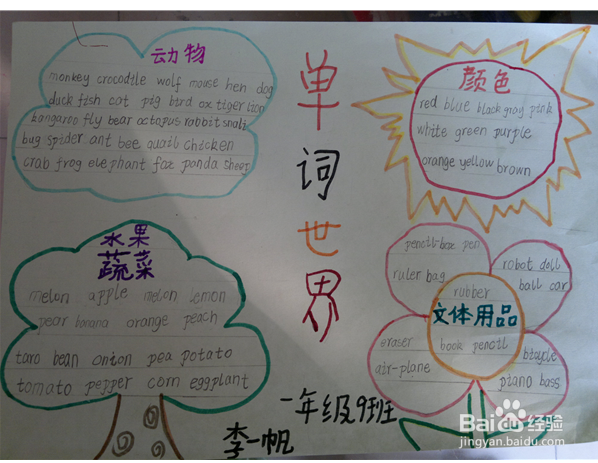 动物
monkey crocodtle wolf mouse hen dog
duck fish cat pig bird ox tiger lion
kangaroo fly bear octopus rabbit snali
bug spider ant bee quail chicken
crab frog elephant fox panda sheep
单词世界
颜色
red blue black gray pink
white green purple
orange yellow brown
水果
蔬菜
melon apple melon lemon
pear banana orange peach
taro bean onion pea potato
tomato pepper corn eggplant
pencil-box pen
ruler bag
robot doll
ball car
rubber
文体用品
book pencil
eraser
air-plane
bicycle
piano bass
一年级9班
李一帆
Baidu经验
jingyan.baidu.com